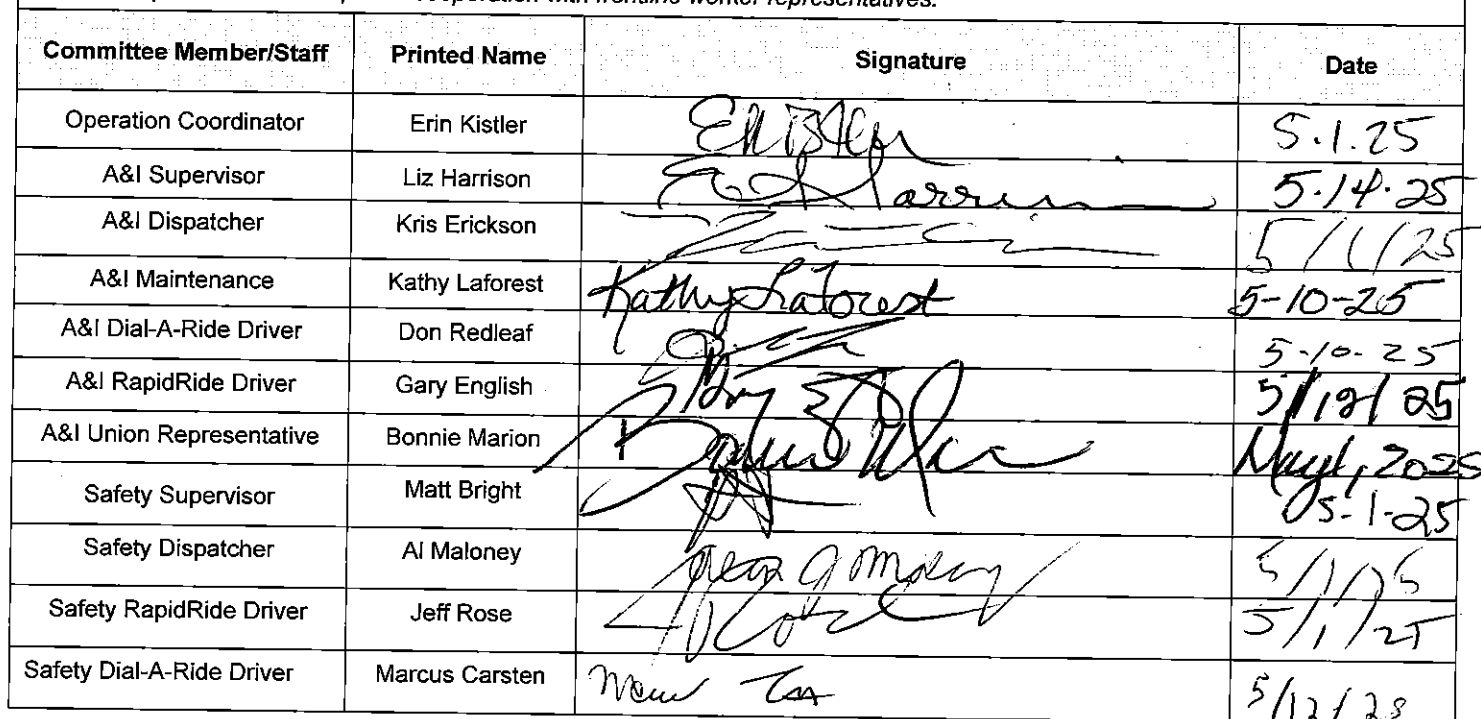 cooperation with frontline worker representatives.
Committee Member/Staff Printed Name Signature Date
Operation Coordinator Erin Kistler 5.1.25
A&I Supervisor Liz Harrison 5.14.25
A&I Dispatcher Kris Erickson 5/1/25
A&I Maintenance Kathy Laforest Kathy Laforest 5-10-25
A&I Dial-A-Ride Driver Don Redleaf 5-10-25
A&I RapidRide Driver Gary English 5/12/25
A&I Union Representative Bonnie Marion May 1, 2025
Safety Supervisor Matt Bright 5-1-25
Safety Dispatcher Al Maloney
Safety RapidRide Driver Jeff Rose 5/1/25
Safety Dial-A-Ride Driver Marcus Carsten